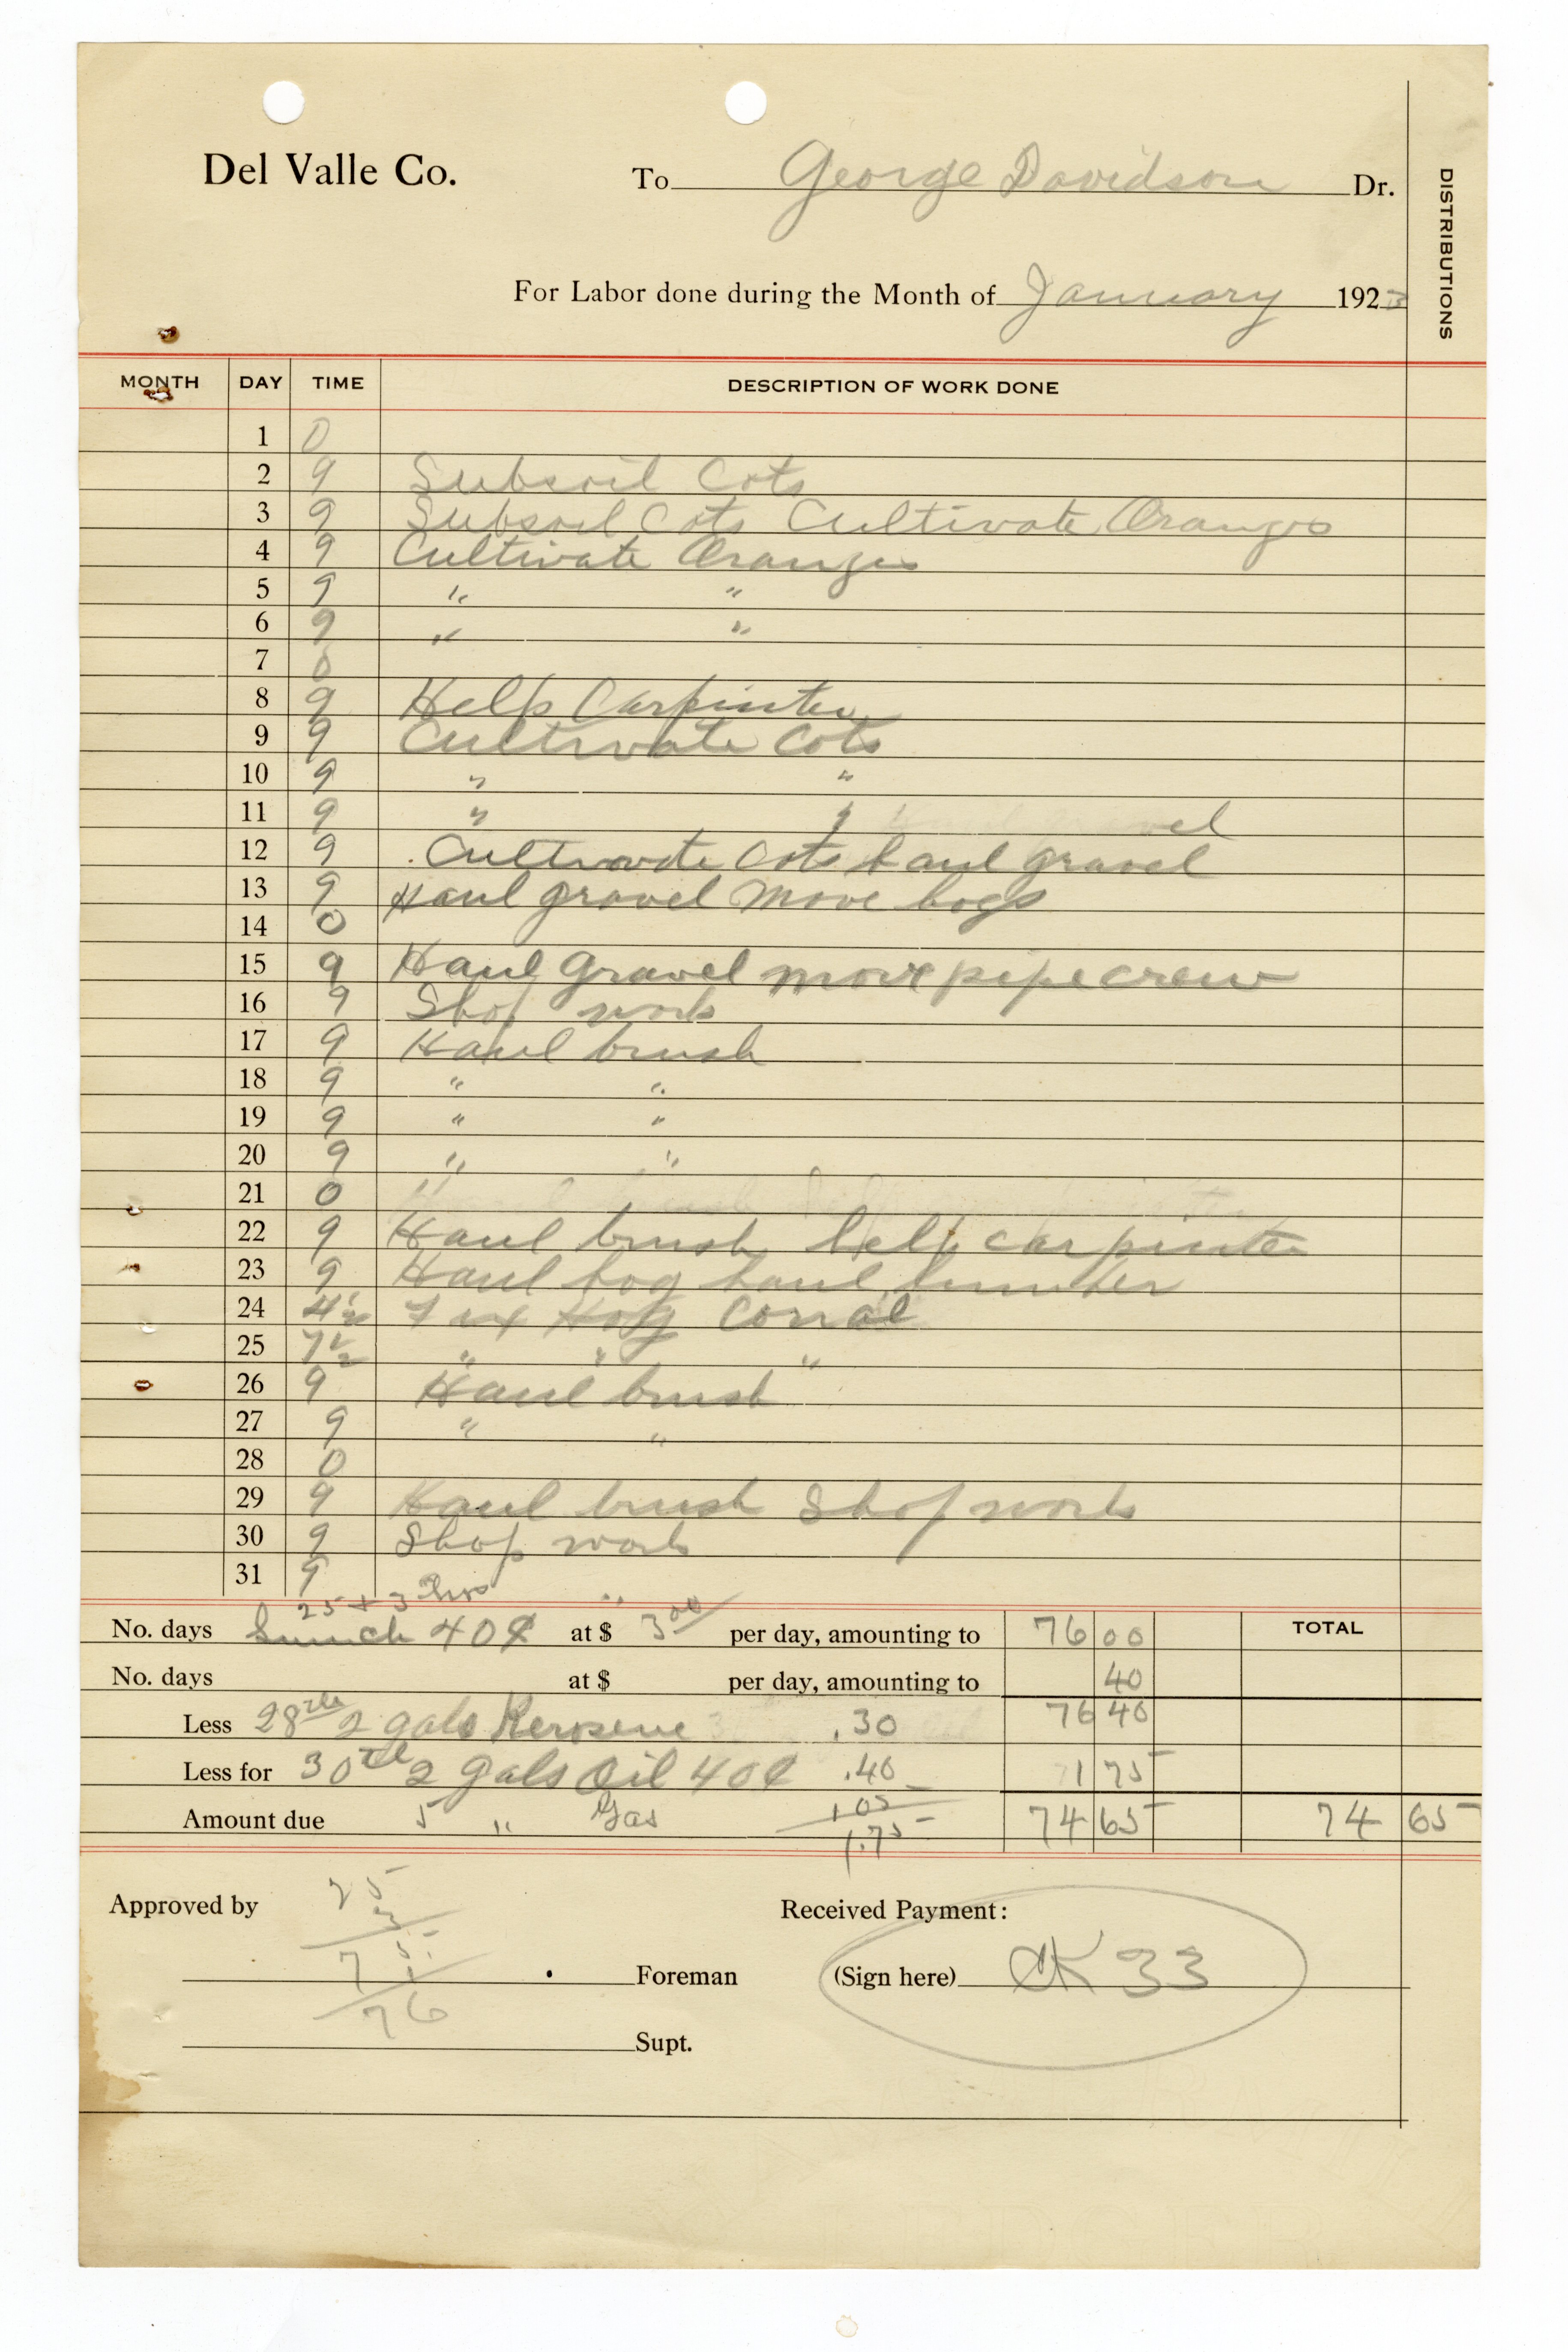 Del Valle Co. To George Davidson Dr.
DISTRIBUTIONS
For Labor done during the Month of January 1923
MONTH DAY TIME DESCRIPTION OF WORK DONE
1 0
2 9 Subsoil Cots
3 9 Subsoil Cots Cultivate Oranges
4 9 Cultivate Oranges
5 9 " "
6 9 " "
7 0
8 9 Help Carpinter
9 9 Cultivate Cots
10 9 " "
11 9 " "
12 9 Cultivate Cots haul gravel
13 9 Haul gravel move hogs
14 0
15 9 Haul gravel move pipe crew
16 9 Shop work
17 9 Haul brush
18 9 " "
19 9 " "
20 9 " "
21 0 "
22 9 Haul brush help carpinter
23 9 Haul hog haul lumber
24 4½ Fix Hog Corral
25 7½ " " "
26 9 Haul brush
27 9 " "
28 0
29 9 Haul brush Shop work
30 9 Shop work
31 9 "
25 + 3 hrs
No. days Lunch 40¢ at $ 3 00 per day, amounting to 76 00 TOTAL
No. days at $ per day, amounting to 40
Less 28th 2 gals Kerosene .30 76 40
Less for 30th 2 gals Oil 40¢ .40 1 75
Amount due 5 " Gas 1 05 74 65 74 65
1.75
Approved by 25 Received Payment:
3
75
1
Foreman (Sign here) CK 33
76
Supt.